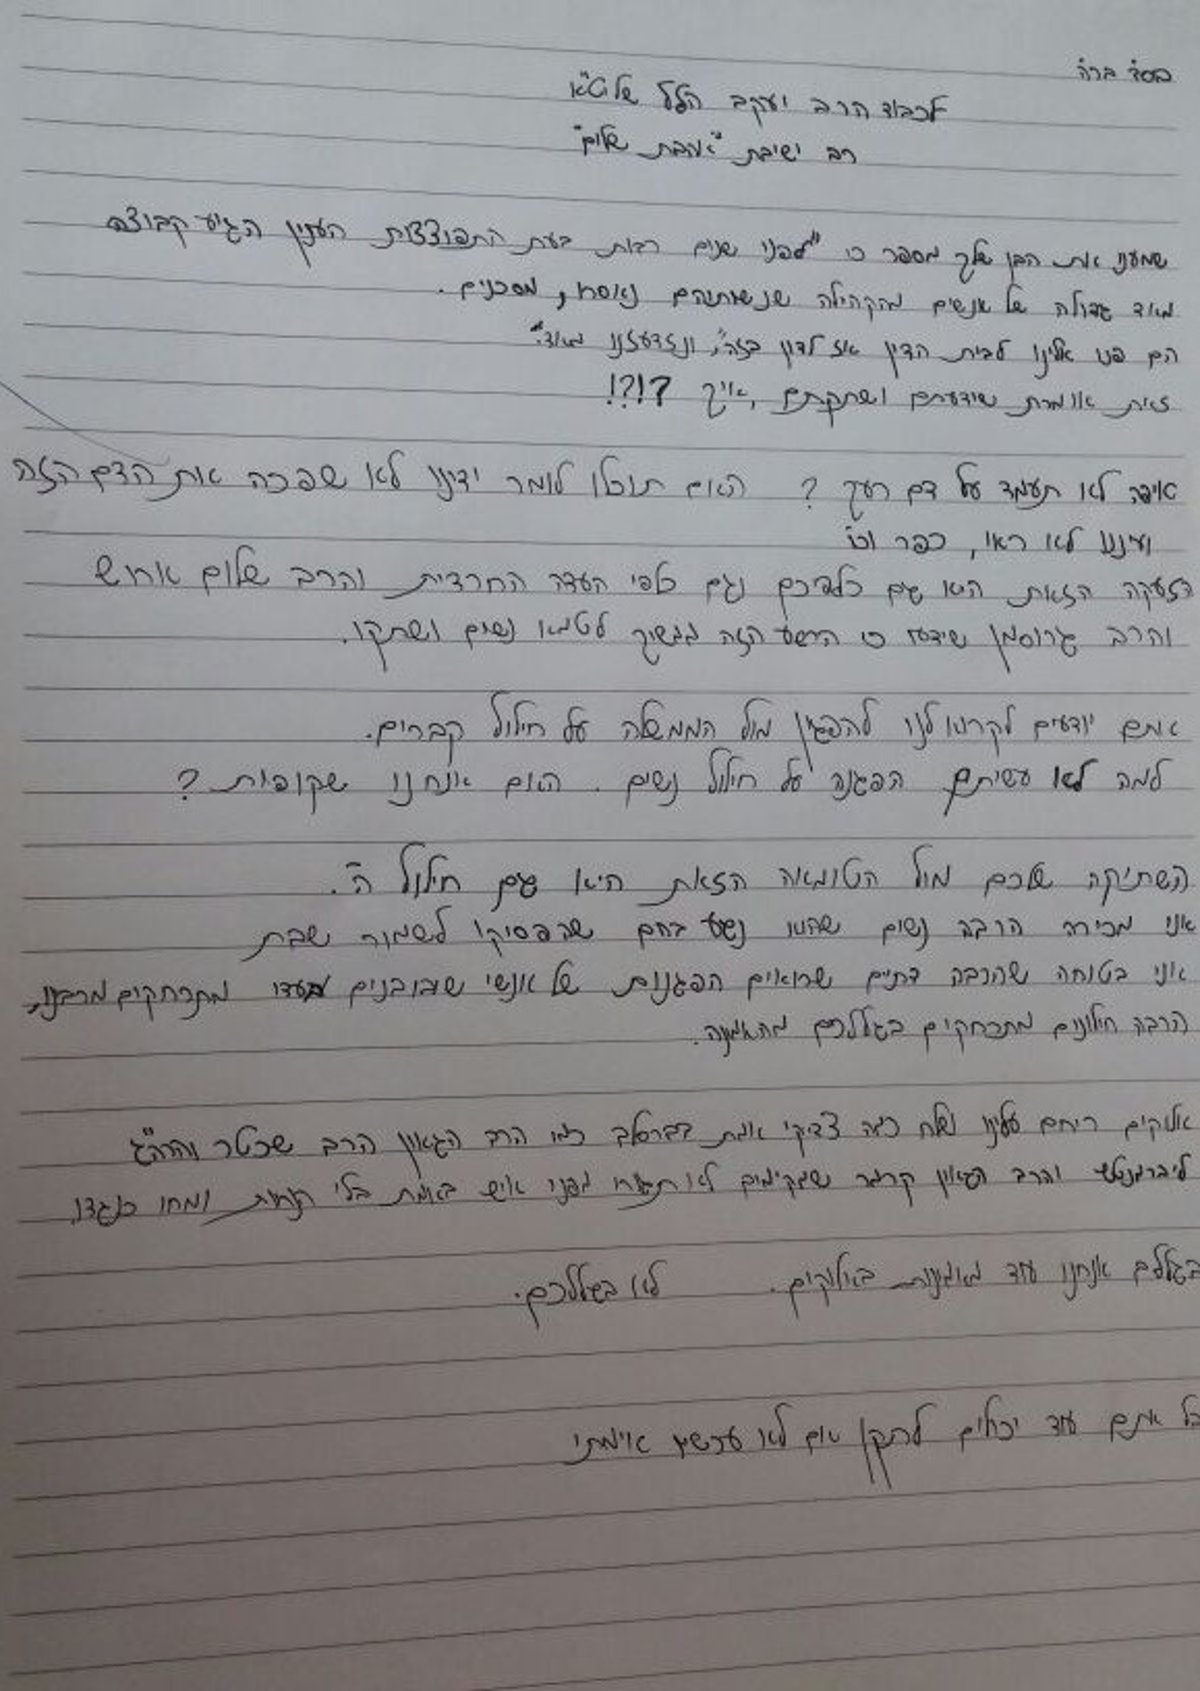 בסד ברה
לכבוד הרב יעקב הלל שליט"א
רב ישיבת "אהבת שלום"
שמענו את הבן שלך מספר כי "לפני שנים רבות בעת התפוצצות הענין הגיע קבוצה
מאוד גדולה של אנשים מהקהילה שנשותיהם נאסרו, מסכנים.
הם פנו אלינו לבית הדין אז לדון בזה", ונזדעזנו מאוד."
זאת אומרת שידעתם ושתקתם, איך ?!?!
איפה לא תעמד על דם רעך ? האם תוכלו לומר ידינו לא שפכה את הדם הזה
ועיננו לא ראו, כפר וכו'
הזעקה הזאת היא גם כלפיכם וגם כלפי העדה החרדית והרב שלום ארוש
והרב גרוסמן שידעו כי הרשע הזה ממשיך לטמא נשים ושתקו.
אתם יודעים לקרוא לנו להפגין מול הממשלה על חילול קברים.
למה לא עשיתם הפגנה על חילול נשים. האם אנחנו שקופות ?
השתיקה שלכם מול הטומאה הזאת היא גם חילול ה'.
אני מכירה הרבה נשים שהוא פגע בהם שהפסיקו לשמור שבת
אני בטוחה שהרבה דתיים שרואים הפגנות של אנשי שובו בנים בעדו מתרחקים מרבנו,
הרבה חילונים מתרחקים בגללכם מהאמונה.
אלוקים ריחם עלינו ושלח כמה צדיקי אמת בברסלב כמו הרב הגאון הרב שכטר והרה"ג
ליברמנטש והרב הגאון קרמר שמקיימים לא תגורו מפני איש באמת בלי חנופות ומחו כנגדו.
בגללם אנחנו עוד מאמינות באלוקים. לא בגללכם.
אתם עוד יכולים לתקן אם לא עכשיו אימתי